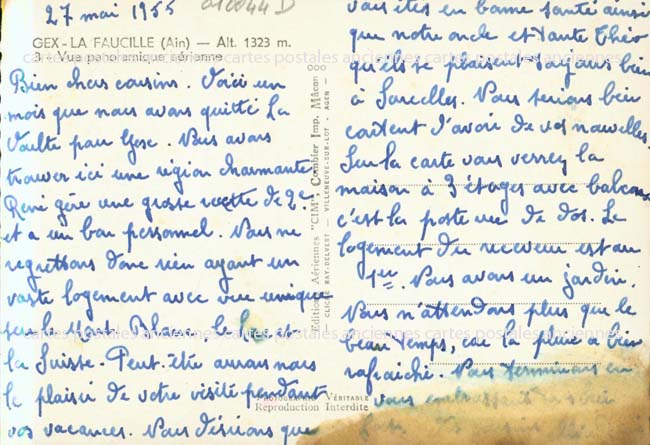 27 mai 1955
010044 D
GEX - LA FAUCILLE (Ain) — Alt. 1323 m.
3 - Vue panoramique aérienne
cartes postales anciennes cartes postales anciennes cartes postales anciennes
Bien chers cousins. Voici un
mois que nous avons quitté La
Voulte pour Gex. Nous avons
trouver ici une région charmante
René gère une grosse recette de 2e
et a un bon personnel. Nous ne
regrettons donc rien ayant un
vaste logement avec vue unique
sur le Mont Blanc, le lac et
la Suisse. Peut-être aurons nous
le plaisir de votre visite pendant
vos vacances. Nous désirons que
Editions Aériennes "CIM", Combier Imp. Mâcon
CLICHÉ RAY-DELVERT - VILLENEUVE-SUR-LOT - AGEN
VÉRITABLE
Reproduction Interdite
vous êtes en bonne santé ainsi
que notre oncle et tante Théo
qu'ils se plaisent toujours bien
à Sarcelles. Nous serions bien
content d'avoir de vos nouvelles.
Sur la carte vous verrez la
maison à 3 étages avec balcons
c'est la poste vue de dos. Le
logement du receveur est au
1er. Nous avons un jardin.
Nous n'attendons plus que le
beau temps, car la pluie a bien
rafraichi. Nous terminons en
vous embrassant
cartes postales anciennes cartes postales anciennes cartes postales anciennes